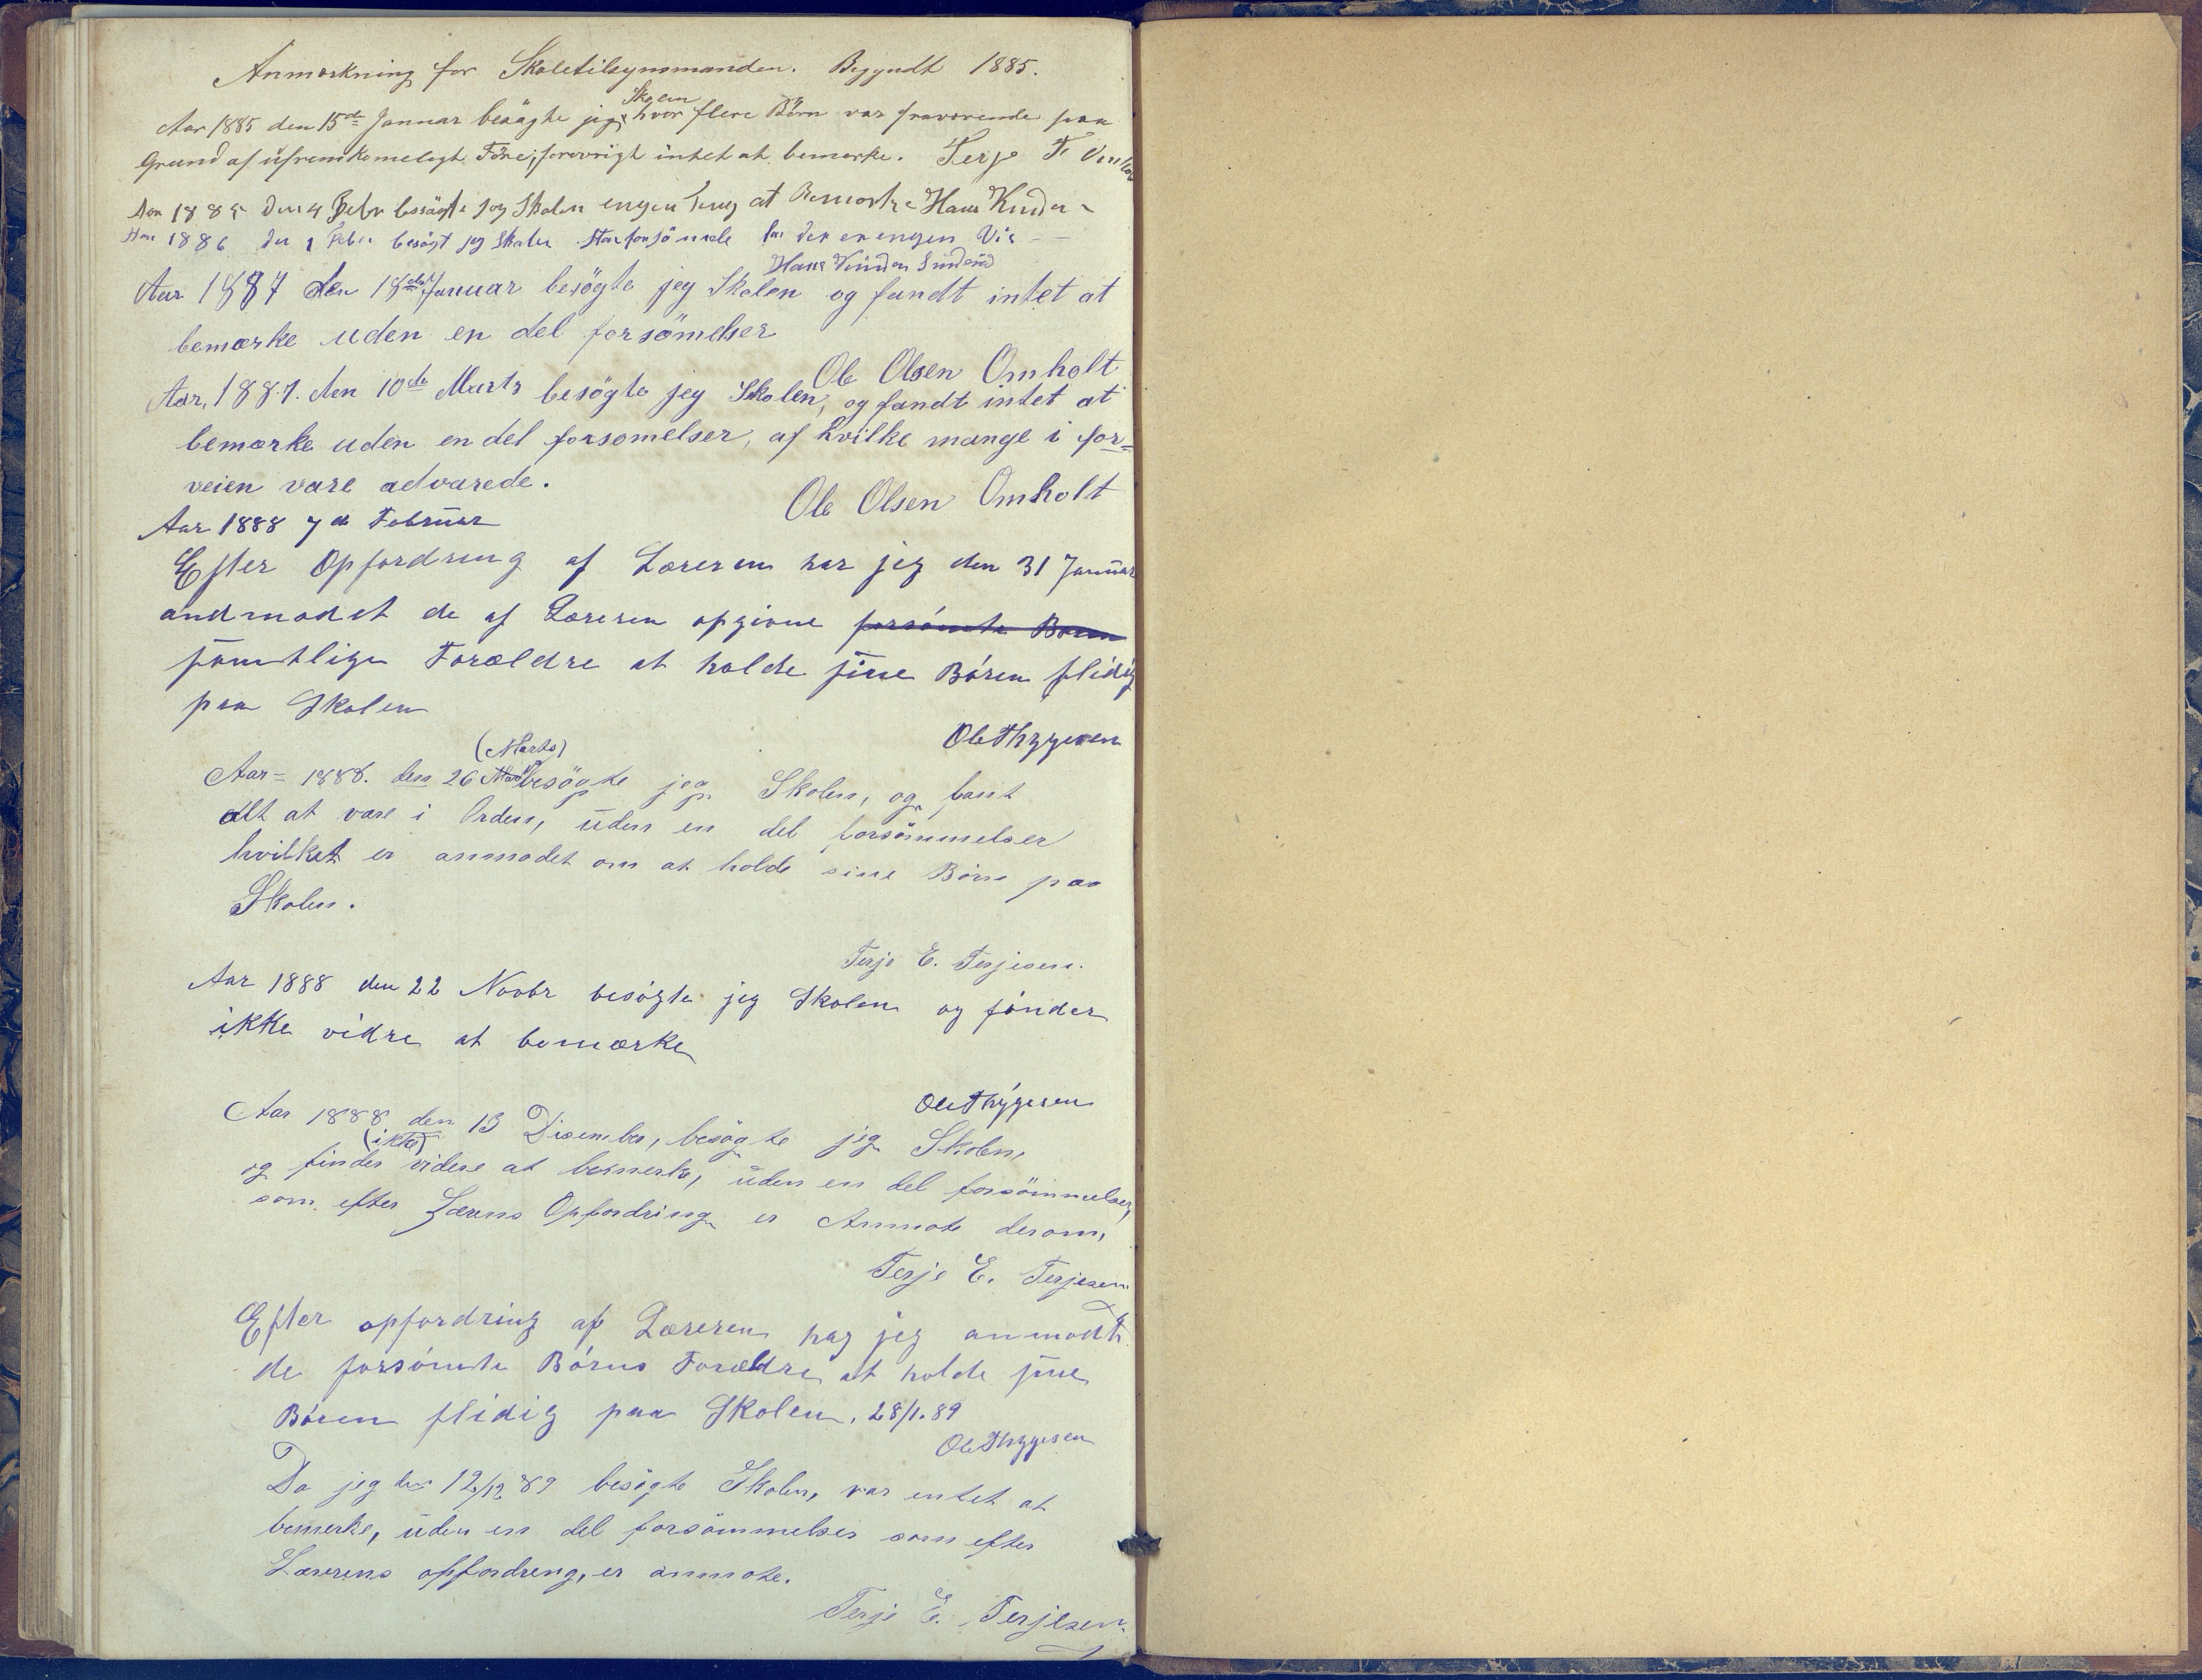 Anmærkning for Skoletilsynsmanden. Begyndt 1885.
Aar 1885 den 15de Januar besøgte jeg Skolen hvor flere Börn var fraværende paa
Grund af ufremkomeligt Före, forøvrigt intet at bemærke. Terje T.
Aar 1885 den 4 Febr besögte jeg Skolen engen Ting at Bemærke Hans Knuden
Aar 1886 den 1 Feber besögt jeg Skolen Stor forsömmele for der er engen Vis
Hans Knuden
Aar 1887 den 18de Januar besögte jeg Skolen og fandt intet at
bemærke uden en del forsömelser
Ole Olsen Omholt
Aar, 1887. den 10de Marts besögte jeg Skolen, og fandt intet at
bemærke uden en del forsomelser, af hvilke mange i for=
veien vare advarede.
Ole Olsen Omholt
Aar 1888 7de Februar
Efter Opfordring af Læreren har jeg den 31 Januar
andmodet de af Læreren opgivne forsömte Børen
samtlige Forældre at holde sine Bóren flidig
paa Skolen
Ole Thygesen
(Marts)
Aar= 1888. den 26 Mar besögte jeg Skolen, og fant
alt at vare i Orden, uden en del forsömmelser
hvilket er anmodet om at holde sine Börn paa
Skolen.
Terje E. Terjesen.
Aar 1888 den 22 Novbr besögte jeg Skolen og fónder
ikke vidre at bemærke
Ole Thygesen
Aar 1888 den 13 Disember, besögte jeg Skolen,
og finder (ikke) videre at bemerke, uden en del forsömmelser,
som efter Lærens Opfordring er Anmote derom,
Terje E. Terjesen
Efter opfordring af Læreren har jeg anmodt
de forsómte Börns Forældre at holde sine
Bóren flidig paa Skolen. 28/1.89
Ole Thygesen
Da jeg den 12/12 89 besögte Skolen, var entet at
bemerke, uden en del forsömmelser som efter
Lærerens opfordreng, er anmote.
Terje E. Terjesen.